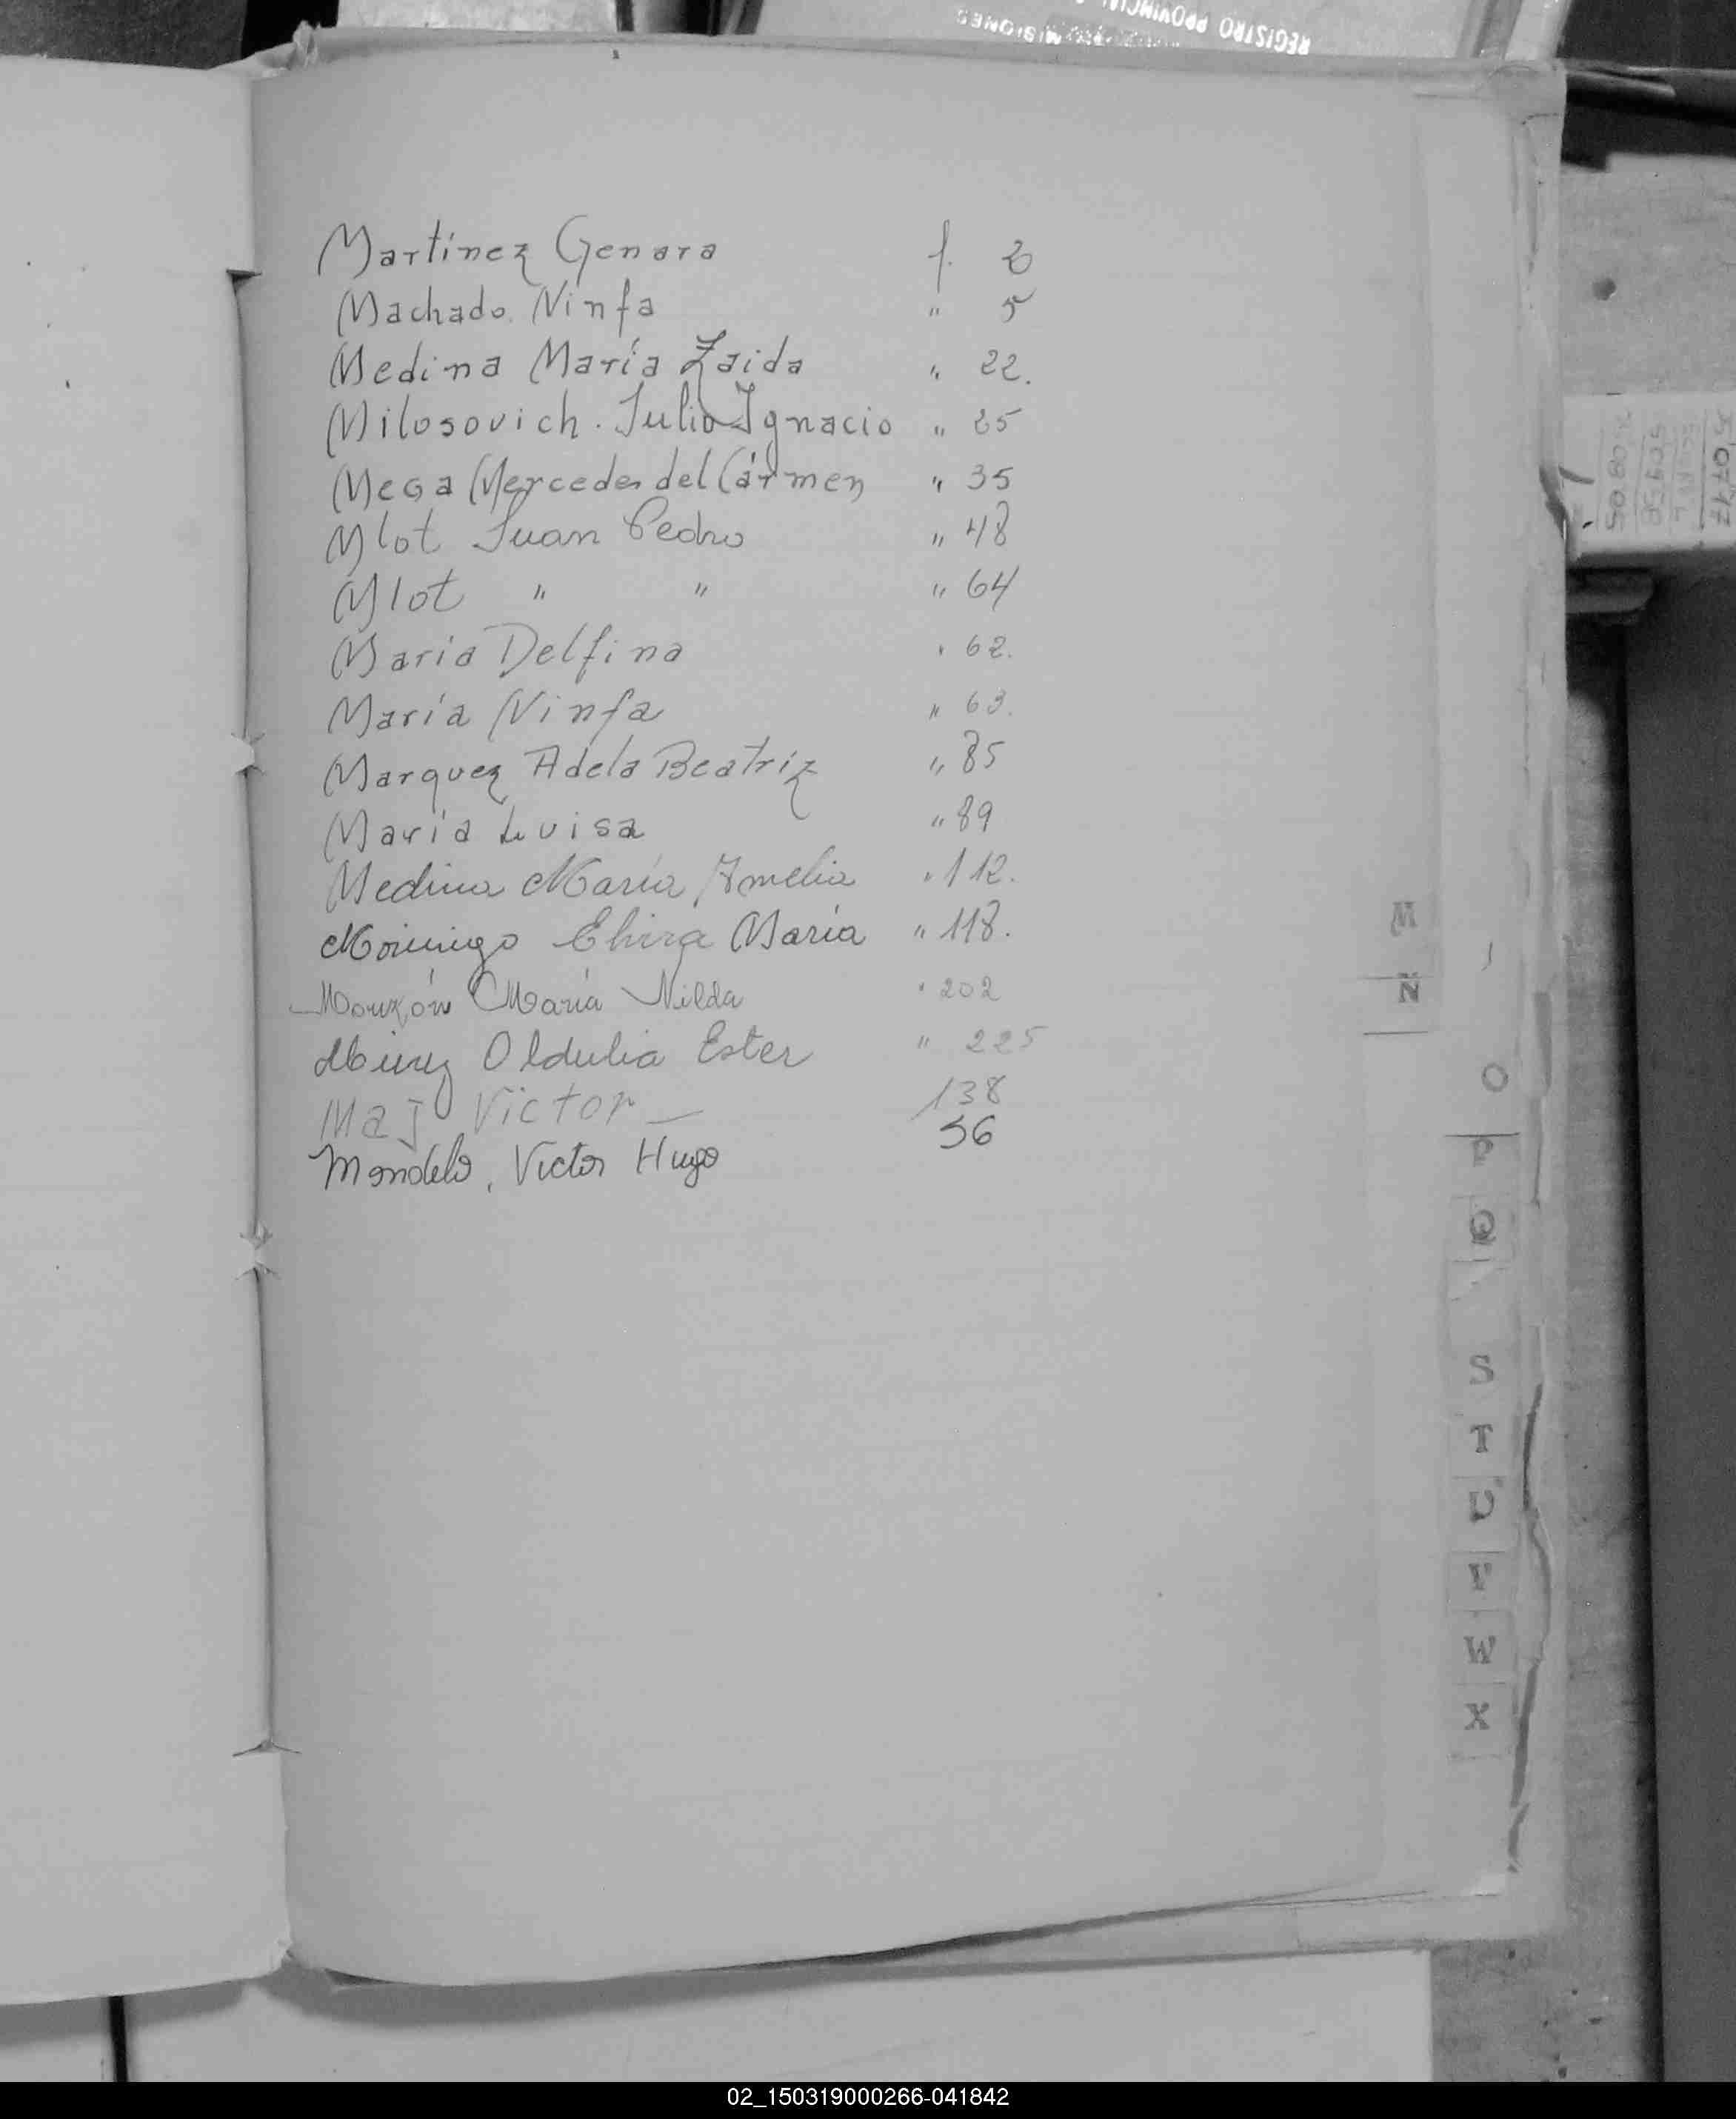 REGISTRO PROVINCIAL
MISIONES
Martínez Genara f. 2
Machado Ninfa " 5
Medina María Zaida " 22.
Milosovich. Julio Ignacio " 25
Meza Mercedes del Cármen " 35
Mlot Juan Pedro " 48
Mlot " " " 64
María Delfina " 62.
María Ninfa " 63.
Marquez Adela Beatriz " 85
María Luisa " 89
Medina María Amelia " 112.
Elvira María " 118.
Monzón María Nilda " 202
Oldulia Ester " 225
Maj Victor 138
Mondelo, Victor Hugo 56
M
N
O
P
Q
S
T
U
V
W
X
50805
50747
02_150319000266-041842